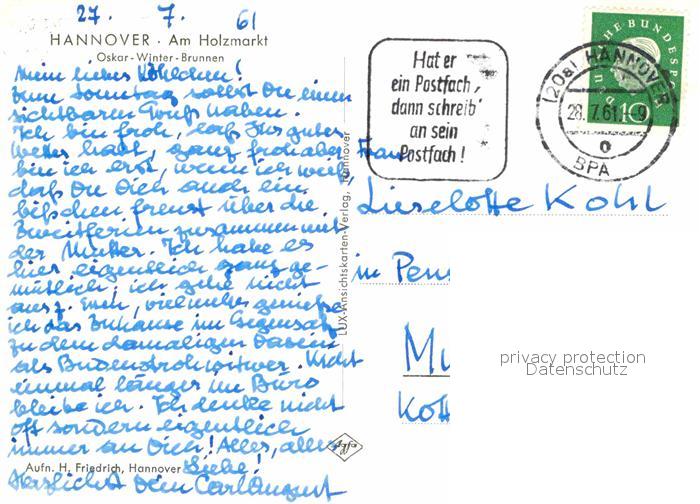 27. 7. 61
HANNOVER · Am Holzmarkt
Oskar-Winter-Brunnen
Mein liebes Köhlchen!
Zum Sonntag sollst Du einen
sichtbaren Gruß haben.
Ich bin froh, daß Ihr gutes
Wetter habt, ganz froh aber
bin ich erst, wenn ich weiß,
daß Du Dich auch ein
bißchen freust über die
Zweitferien zusammen mit
der Mutter. Ich habe es
hier eigentlich ganz ge-
mütlich, ich gehe nicht
aus z. Essen, vielmehr genieße
ich das Zuhause im Gegensatz
zu dem damaligen Dasein
als Budenstrohwitwer. Nicht
einmal länger im Büro
bleibe ich. Ich denke nicht
oft sondern eigentlich
immer an Dich! Alles, alles
Liebe!
Aufn. H. Friedrich, Hannover
Herzlichst Dein Carl August
LUX-Ansichtskarten-Verlag, Hannover
Agfa
Hat er
ein Postfach,
dann schreib'
an sein
Postfach!
(20a) HANNOVER
28.7.61-9
BPA
DEUTSCHE BUNDESPOST
10
Frau
Lieselotte Kohl
in Pen
privacy protection
Datenschutz